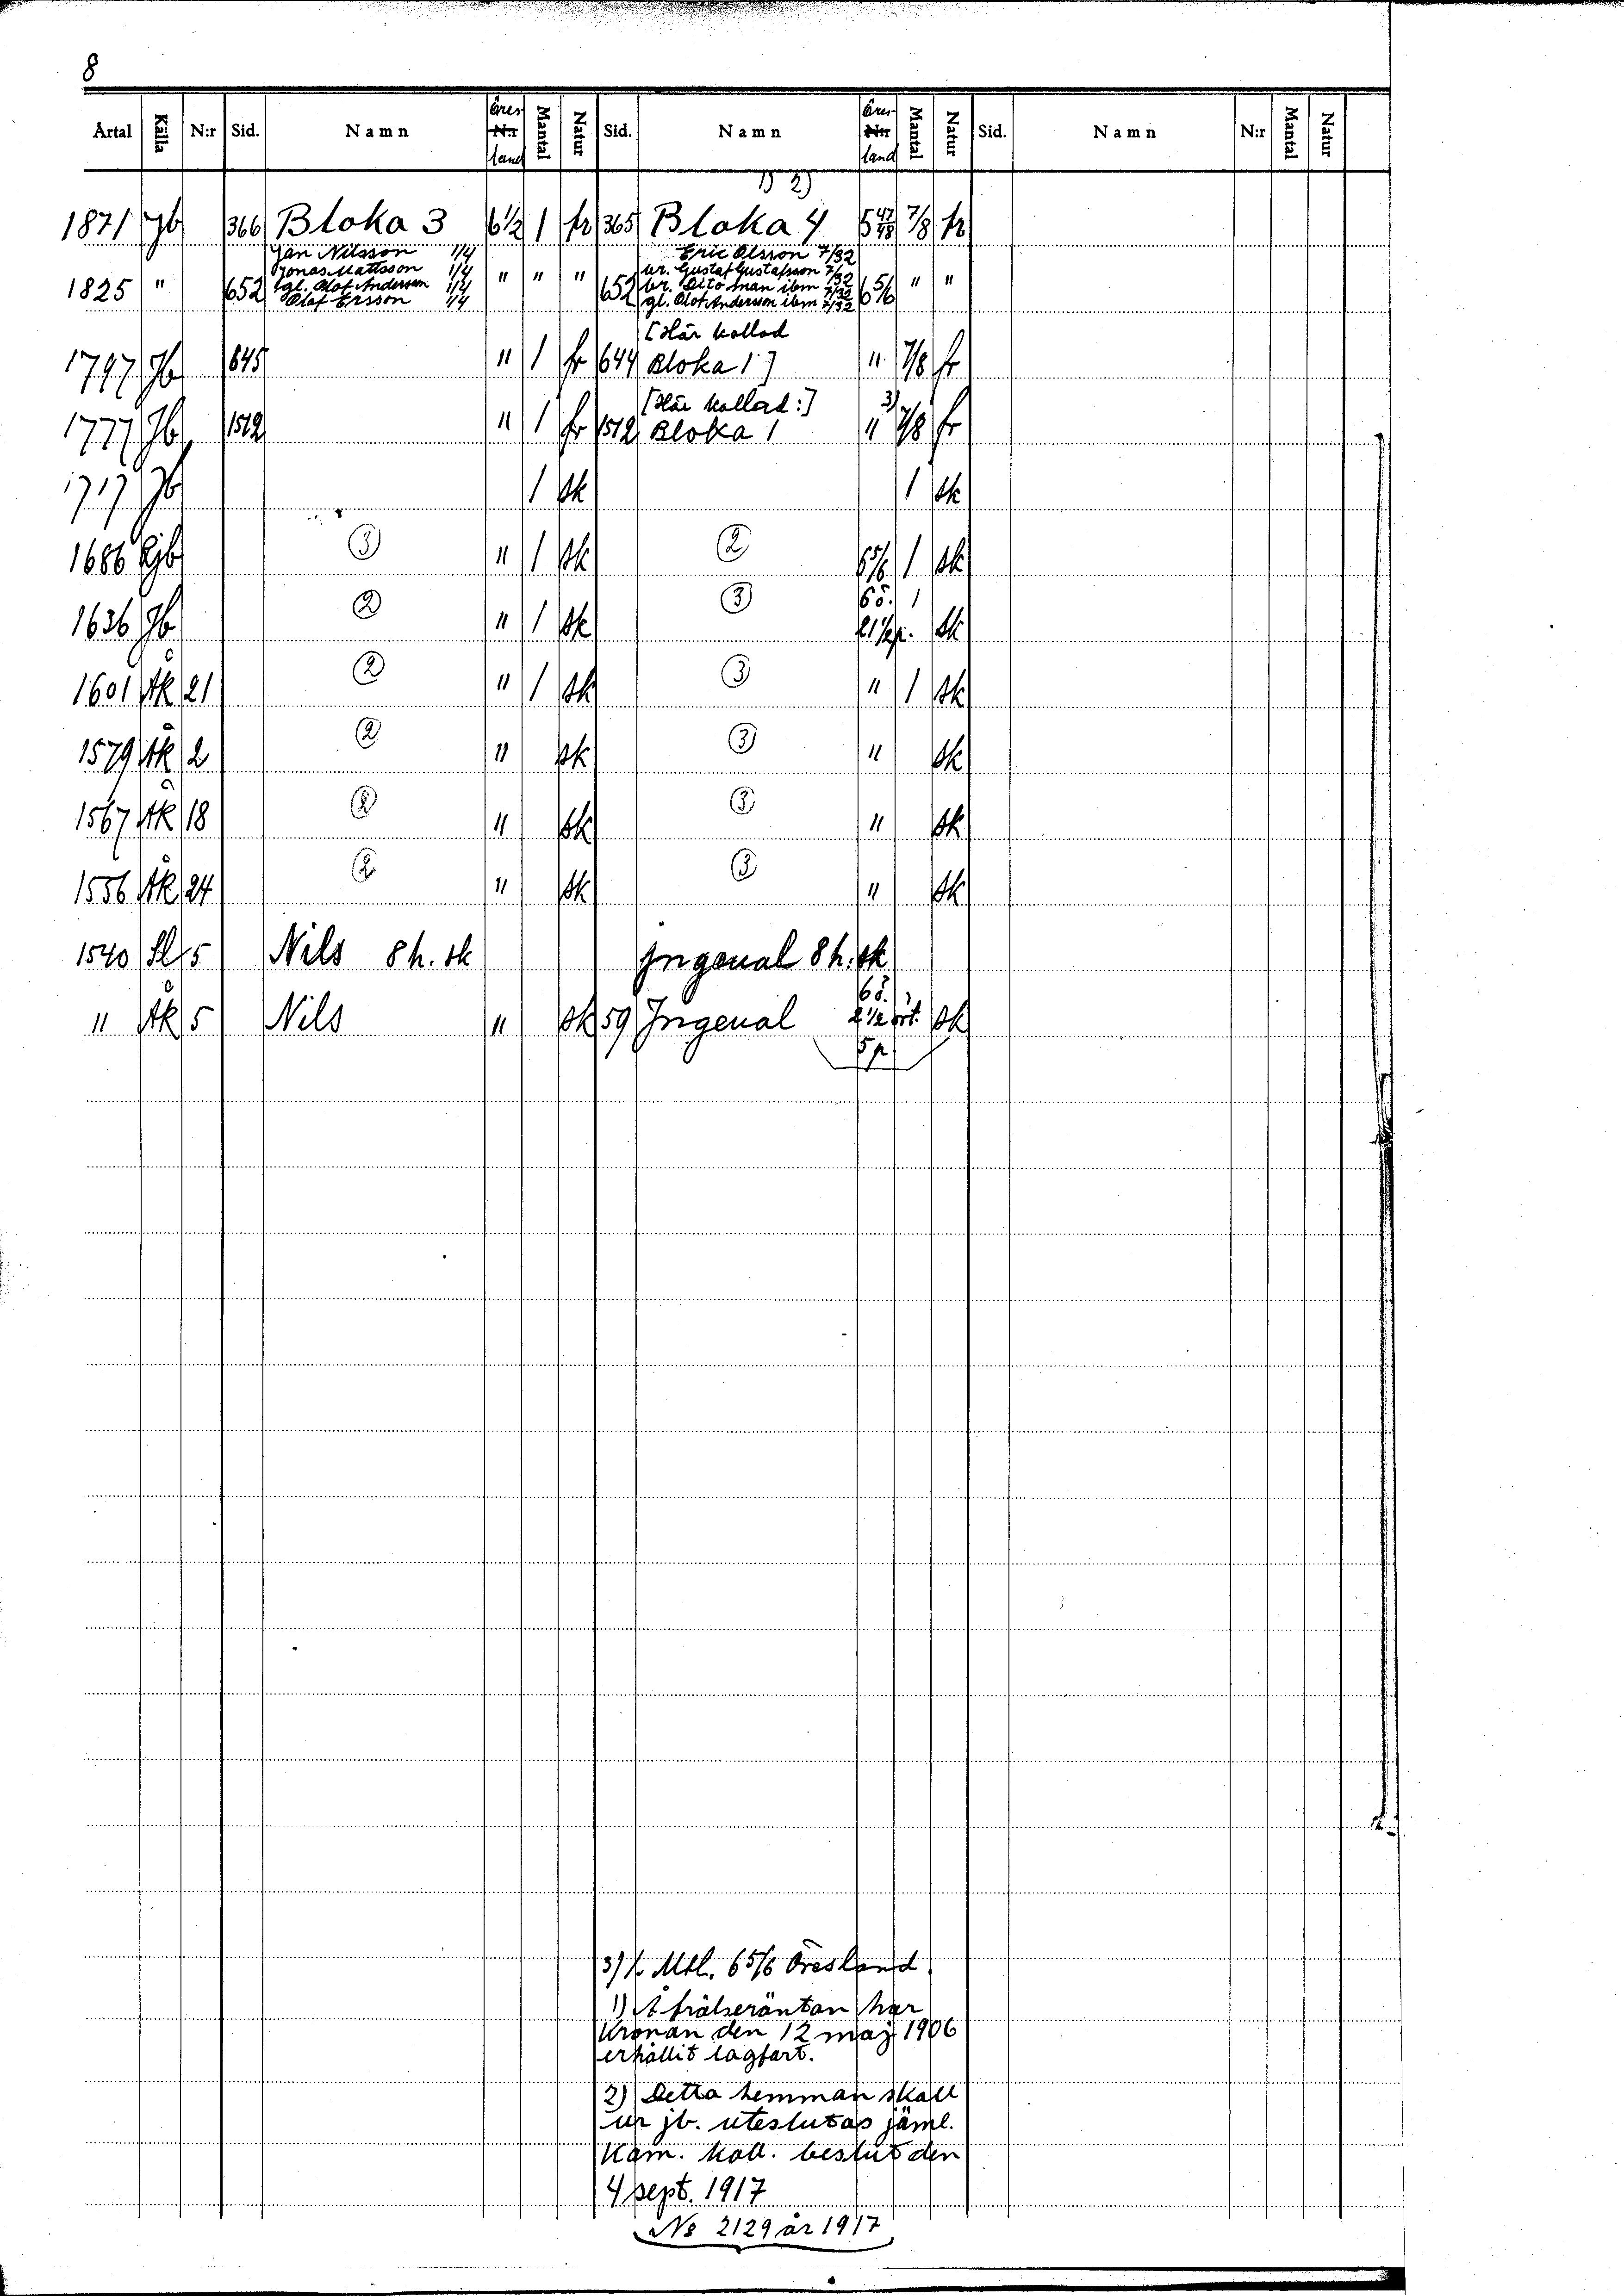 8
Årtal Källa N:r Sid. Namn Öres N:r land Mantal Natur Sid. Namn Öres N:r land Mantal Natur Sid. Namn N:r Mantal Natur
1) 2)
1871 Jb 366 Bloka 3 6 1/2 1 fr 365 Bloka 4 5 47/48 7/8 fr
Jan Nilsson 1/4 Eric Olsson 7/32
Jonas Mattsson 1/4 br. Gustaf Gustafsson 7/32
1825 " 652 gl. Olof Andersson 1/4 " " " 652 br. Dito man ibm 7/32 6 5/6 " "
Olof Ersson 1/4 gl. Olof Andersson ibm 7/32
[Här kallad
1747 Jb 645 " 1 fr 644 Bloka 1] " 7/8 fr
[Här kallad:] 3)
1777 Jb 1512 " 1 fr 1512 Bloka 1 " 7/8 fr
1717 Jb 1 sk 1 sk
1686 Jb 3 " 1 sk 2 6 5/6 1 sk
1636 Jb 2 " 1 sk 3 6ö. 1 sk
1601 Åk 21 2 " 1 sk 3 " 1 sk
1579 Åk 2 2 " sk 3 " sk
1567 Åk 18 2 " sk 3 " sk
1556 Åk 24 2 " sk 3 " sk
1540 Sl 5 Nils 8 h. sk Ingeual 8 h. sk
" Åk 5 Nils " sk 59 Ingeual 6ö. 2 1/2 ört. sk
5 p
3) 1 Mtl. 6 5/6 Öresland
1) Å frälseräntan har
Kronan den 12 maj 1906
erhållit lagfart.
2) Detta hemman skall
ur jb. uteslutas jäml.
Kam. Koll. beslut den
4 sept. 1917
No 2129 år 1917